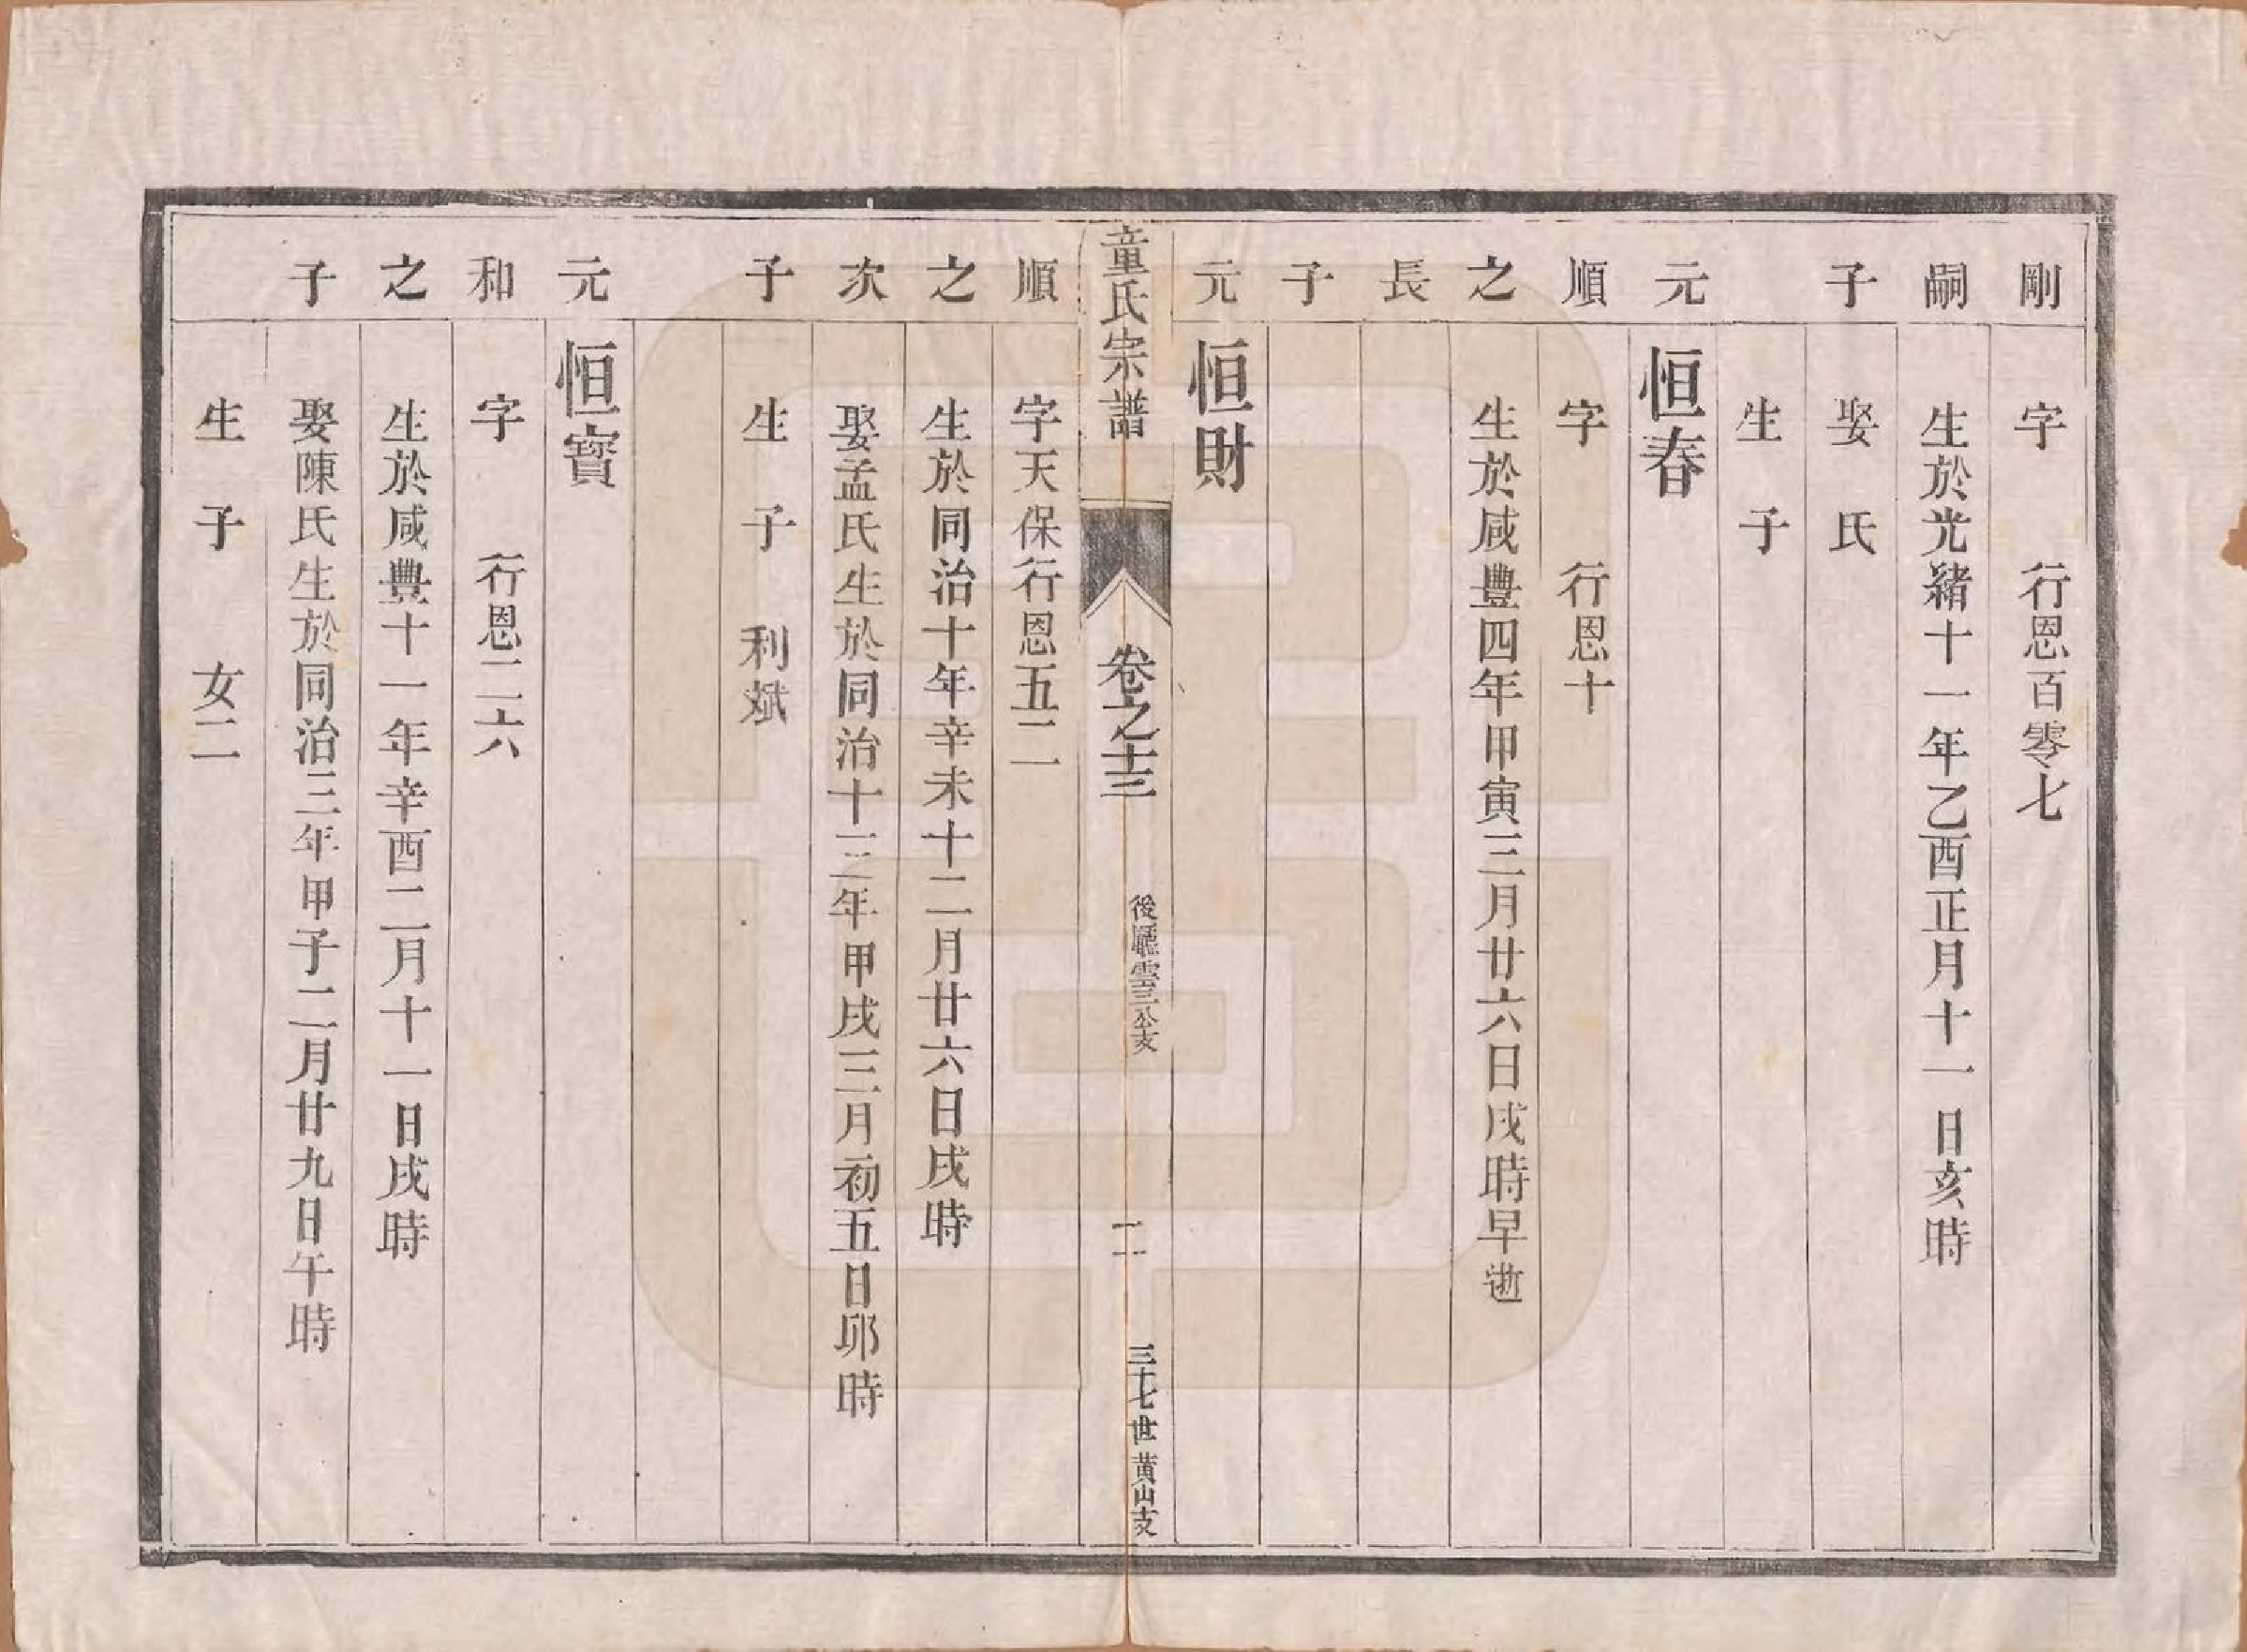 剛 字 行恩百零七
嗣 生於光緒十一年乙酉正月十一日亥時
子 娶 氏
生 子
元 恒春
順 字 行恩十
之 生於咸豐四年甲寅三月廿六日戌時早逝
長
子
元 恒財
童氏宗譜 卷之十三
雲三公支
二
三十七世 黄山支
順 字天保行恩五二
之 生於同治十年辛未十二月廿六日戌時
次 娶孟氏生於同治十三年甲戌三月初五日邜時
子 生 子 利斌
元 恒寶
和 字 行恩二六
之 生於咸豐十一年辛酉二月十一日戌時
子 娶陳氏生於同治三年甲子二月廿九日午時
生 子 女二